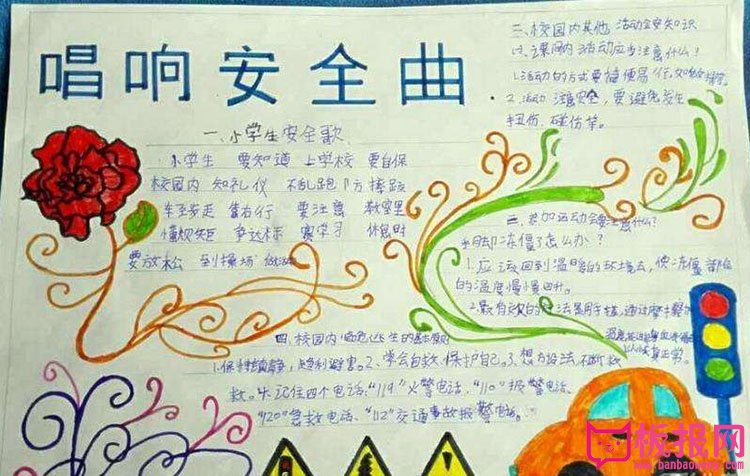 唱响安全曲
一、小学生安全歌
小学生 要知道 上学校 要自保
校园内 知礼仪 不乱跑 防摔跤
靠右行 要注意 教室里
懂规矩 争达标 要学习 休息时
要放松 到操场 做
二、校园内其他活动安知识
1、课间活动应当注意什么?
1.活动的方式要简便易行,如做操等。
2.活动 注意安全,要避免发生
扭伤、碰伤等。
三、参加运动会要注意什么?
手脚冻僵了怎么办?
1.应该回到温暖的环境去,使冻僵部位
的温度慢慢回升。
2.最有效的方法是用手搓,通过摩擦
正常。
四、校园内 的基本原则
1.保持镇静,趋利避害。2、学会自救、保护自己。3、想方设法不断求
救。4、记住四个电话:“119”火警电话、“110”报警电话、
“120”急救电话、“112”交通事故报警电话。
板报网
www.banbaowang.com